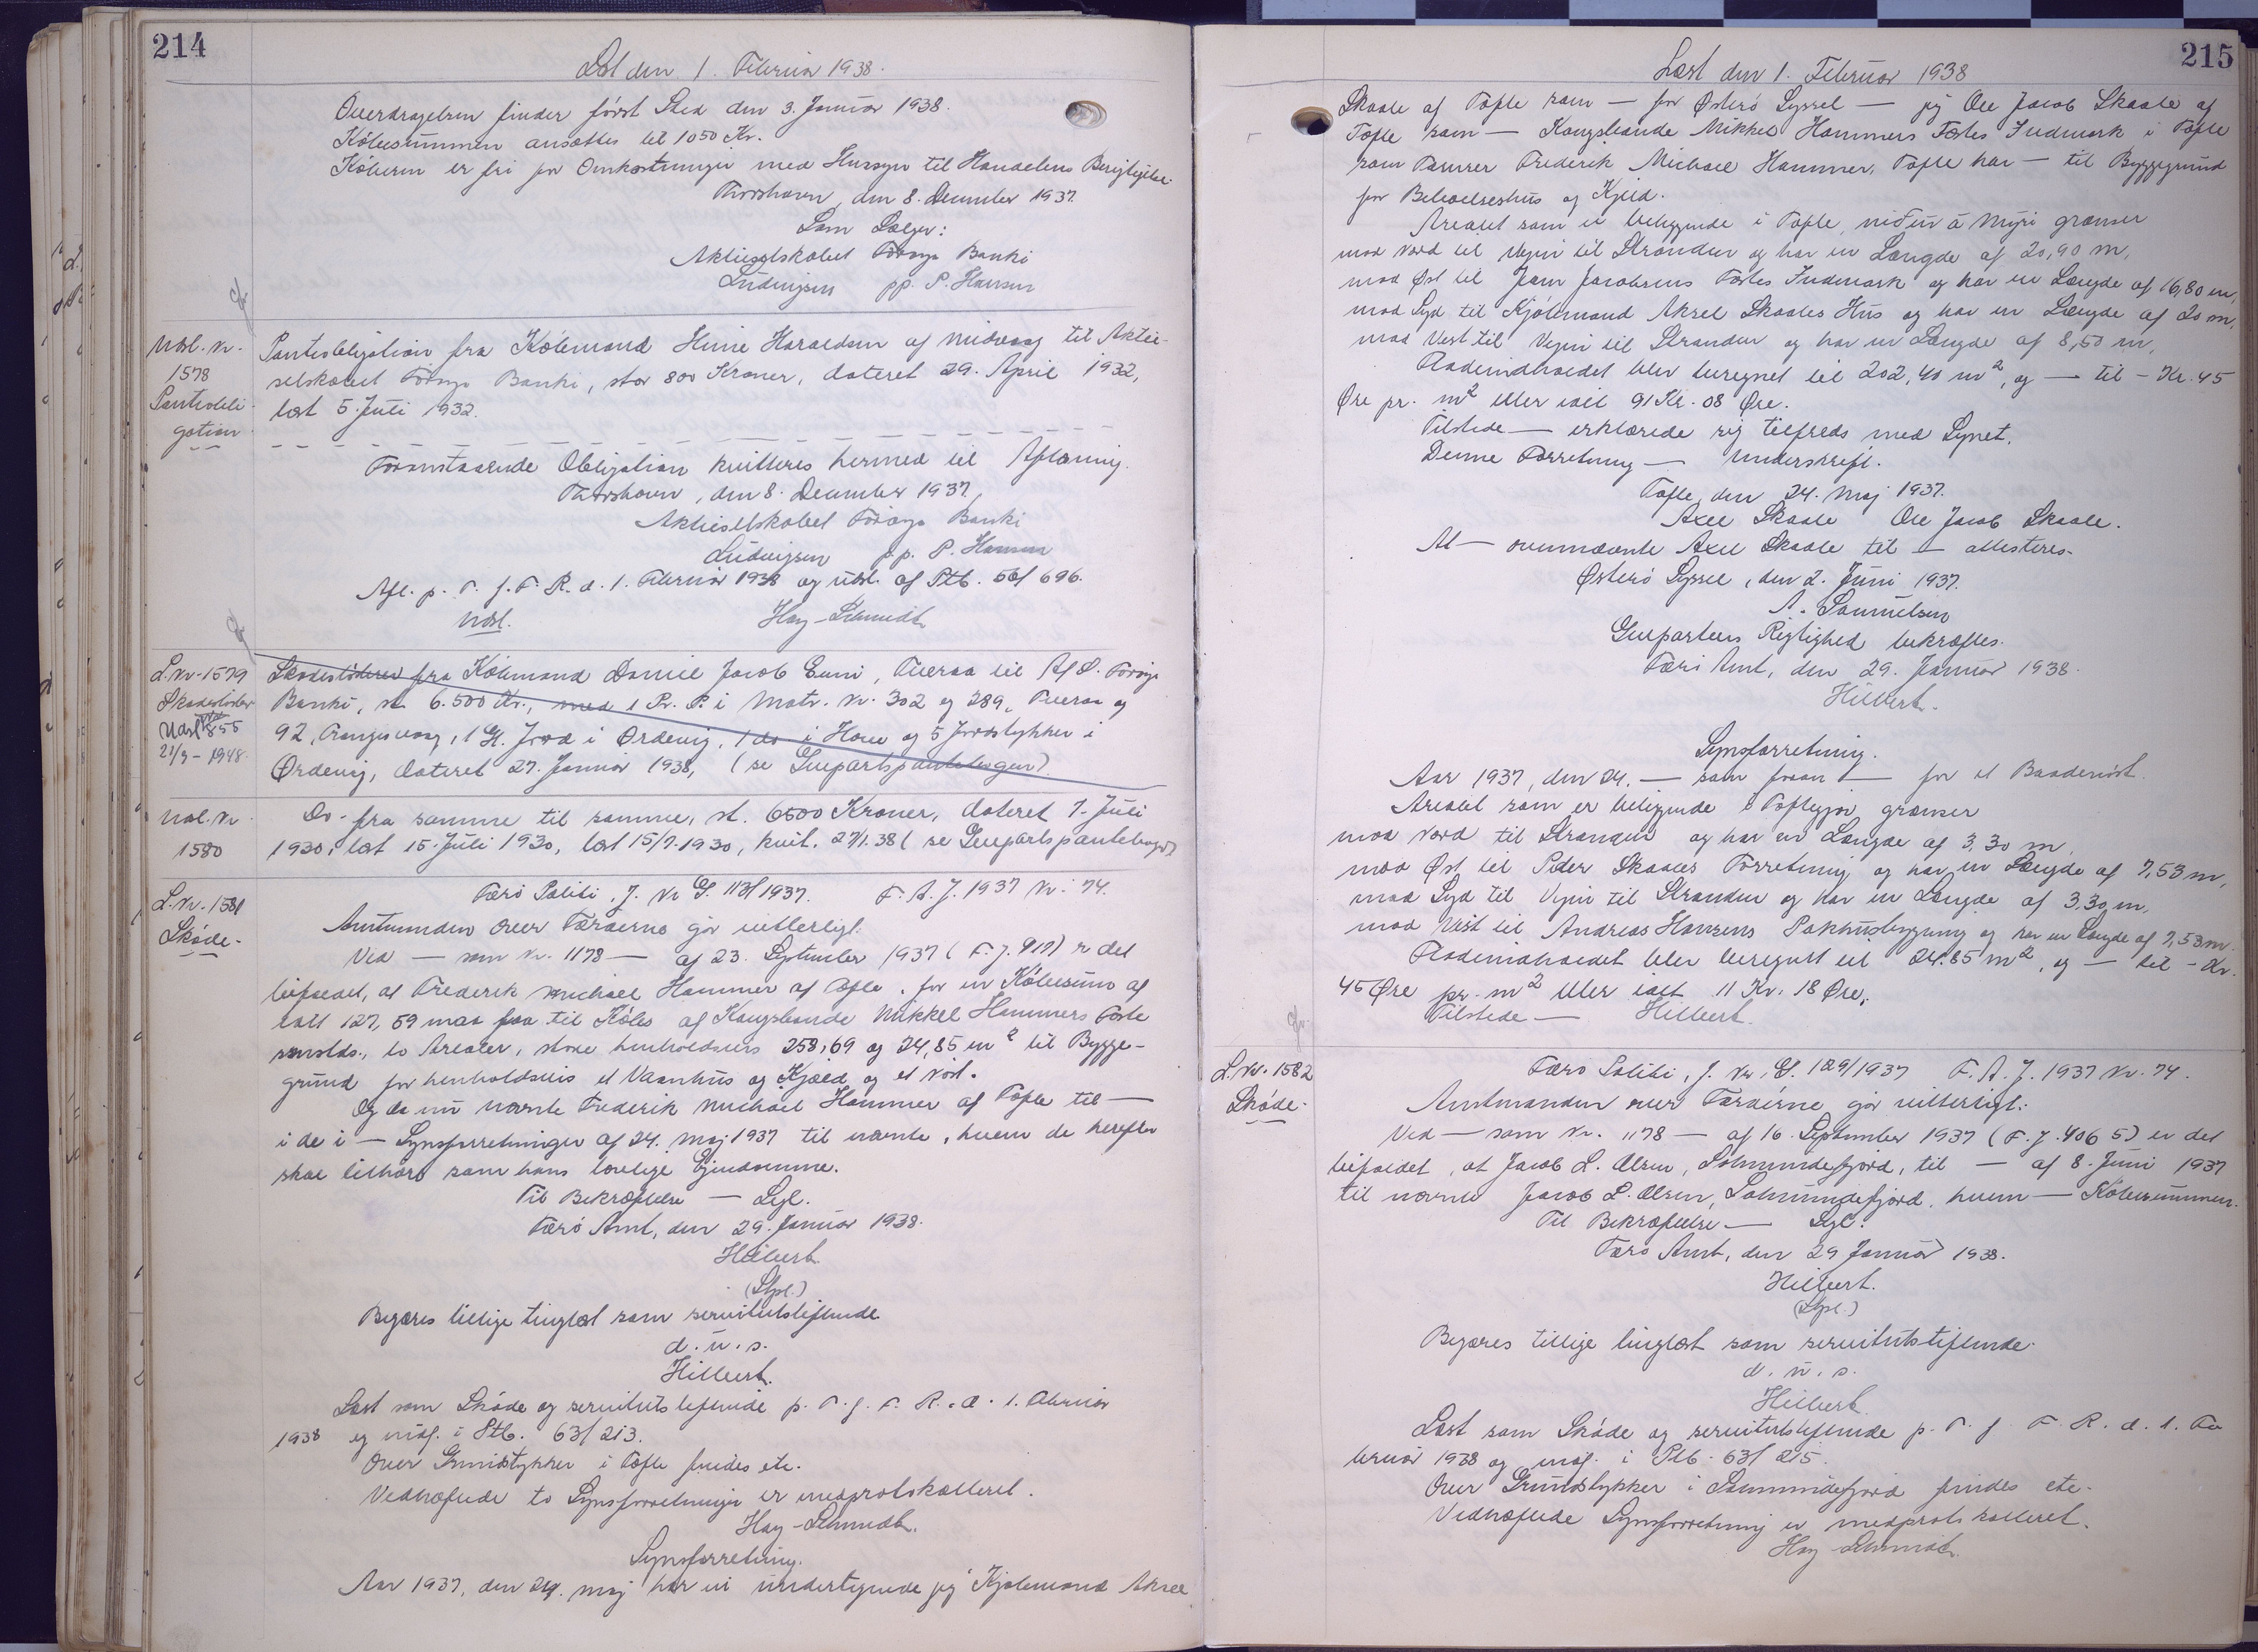 214
Læst den 1. Februar 1938.
Overdragelsen finder først Sted den 3. Januar 1938.
Købesummen ansættes til 1050 Kr.
Køberen er fri for Omkostninger med Hensyn til Handelens Berigtigelse.
Thorshavn, den 8. December 1937.
Som Sælger:
Aktieselskabet Føroya Banki
Ludvigsen pp. P. Hansen
Udsl. Nr. 1578 Pantobligation
Pantobligation fra Købmand Heine Haraldsen af Midvaag til Aktie-
selskabet Føroya Banki, stor 800 Kroner, dateret 29. April 1932,
læst 5. Juli 1932.
Foranstaaende Obligation kvitteres hermed til Aflæsning.
Thorshavn, den 8. December 1937.
Aktieselskabet Føroya Banki
Ludvigsen p.p. P. Hansen
Afl. p. T. f. F. R. d. 1. Februar 1938 og udsl. af Ptb. 56/696.
Udsl. Hay-Schmidt
L. Nr. 1579 Skadesløsbr. Udsl. 855 21/9-1948
Skadesløsbrev fra Købmand Daniel Jacob Euni, Tveraa til A/S. Føroya
Banki, st. 6.500 Kr., med 1 Pr. P. i Matr. Nr. 302 og 289, Tveraa og
92, Trangisvaag, 1 St. Jord i Ørdevig, 1 do i Hove og 5 Jordstykker i
Ørdevig, dateret 27. Januar 1938, (se Genpartspantebogen).
Udsl. Nr. 1580
Do. fra samme til samme, st. 6500 Kroner, dateret 7. Juli
1930, læst 15. Juli 1930, læst 15/7.1930, kvit. 27/1.38 (se Genpartspantebogen)
L. Nr. 1581 Skøde.
Færø Politi, J. Nr G. 113/1937. F. A. J. 1937 Nr. 74.
Amtmanden over Færøerne gør vitterligt:
Ved — som Nr. 1178 — af 23. September 1937 (F. J. 917) er det
bifaldet, at Frederik Michael Hammer af Tofte, for en Købesum af
ialt 127,59 maa faa til Købs af Kongsbonde Mikkel Hammers Fæste
sammesteds., to Arealer, store henholdsvis 258,69 og 24,85 m² til Bygge-
grund for henholdsvis et Vaanhus og Kjæld og et Nøst.
Og da nu nævnte Frederik Michael Hammer af Tofte til —
i de i — Synsforretninger af 24. Maj 1937 til nævnte, hvem de herefter
skal tilhøre som hans lovlige Ejendomme.
Til Bekræftelse — Segl.
Færø Amt, den 29. Januar 1938.
Hilbert.
(Stpl.)
Begæres tillige tinglæst som servitutstiftende
d. u. s.
Hilbert.
Læst som Skøde og servitutstiftende p. T. f. F. R. d. 1. Februar
1938 og indf. i Ptb. 63/213.
Over Grundstykker i Tofte findes etc.
Vedhæftede to Synsforretninger er medprotokolleret.
Hay-Schmidt.
Synsforretning.
Aar 1937, den 24. Maj har vi undertegnede jeg Kjøbmand Aksel
215
Læst den 1. Februar 1938
Skaale af Tofte som — for Østerø Syssel — jeg Ole Jacob Skaale af
Tofte som — Kongsbonde Mikkel Hammers Fæstes Indmark i Tofte
som Tømrer Frederik Michael Hammer, Tofte har — til Byggegrund
for Beboelseshus og Kjeld.
Arealet som er beliggende i Tofte, niður á Mýri grænser
mod Nord til Vejen til Stranden og har en Længde af 20,90 m,
mod Øst til Joen Jacobsens Fæstes Indmark og har en Længde af 16,80 m,
mod Syd til Kjøbmand Aksel Skaales Hus og har en Længde af 20 m,
mod Vest til Vejen til Stranden og har en Længde af 8,50 m,
Fladeindholdet blev beregnet til 202,40 m², og — til - Kr. 45
Øre pr. m² eller ialt 91 Kr. 08 Øre.
Tilstede — erklærede sig tilfreds med Synet.
Denne Forretning — underskrift.
Tofte, den 24. Maj 1937.
Axel Skaale Ole Jacob Skaale.
At — ovennævnte Axel Skaale til — attesteres.
Østerø Syssel, den 2. Juni 1937.
A. Samuelsen
Genpartens Rigtighed bekræftes.
Færø Amt, den 29. Januar 1938.
Hilbert.
Synsforretning.
Aar 1937, den 24. — som foran — for et Baadenøst.
Arealet som er beliggende i Toftegjov grænser
mod Nord til Stranden og har en Længde af 3,30 m,
mod Øst til Peder Skaales Forretning og har en Længde af 7,53 m,
mod Syd til Vejen til Stranden og har en Længde af 3,30 m,
mod Vest til Andreas Hansens Pakhusbygning og har en Længde af 7,53 m.
Fladeindholdet blev beregnet til 24.85 m², og — til - Kr.
45 Øre pr. m² eller ialt 11 Kr. 18 Øre.
Tilstede — Hilbert.
L. Nr. 1582 Skøde.
Færø Politi, J. Nr. G. 129/1937 F. A. J. 1937 Nr. 74.
Amtmanden over Færøerne gør vitterligt:
Ved — som Nr. 1178 — af 16. September 1937 (F. J. 406 5) er det
bifaldet, at Jacob L. Olsen, Solmundefjord, til — af 8. Juni 1937
til nævnte Jacob L. Olsen, Solmundefjord, hvem — Købesummen.
Til Bekræftelse — Segl.
Færø Amt, den 29 Januar 1938.
Hilbert.
(Stpl.)
Begæres tillige tinglæst som servitutstiftende.
d. u. s.
Hilbert
Læst som Skøde og servitutstiftende p. T. f. F. R. d. 1. Fe
bruar 1938 og indf. i Ptb. 63/215.
Over Grundstykker i Solmundefjord findes etc.
Vedhæftede Synsforretning er medprotokolleret.
Hay-Schmidt.